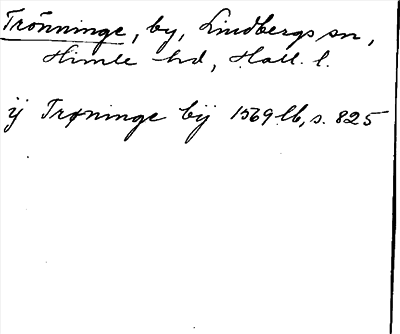 Trönninge, by, Lindbergs sn,
Himle hd, Hall. l.
ij Trøninge bij 1569 lb, s. 825